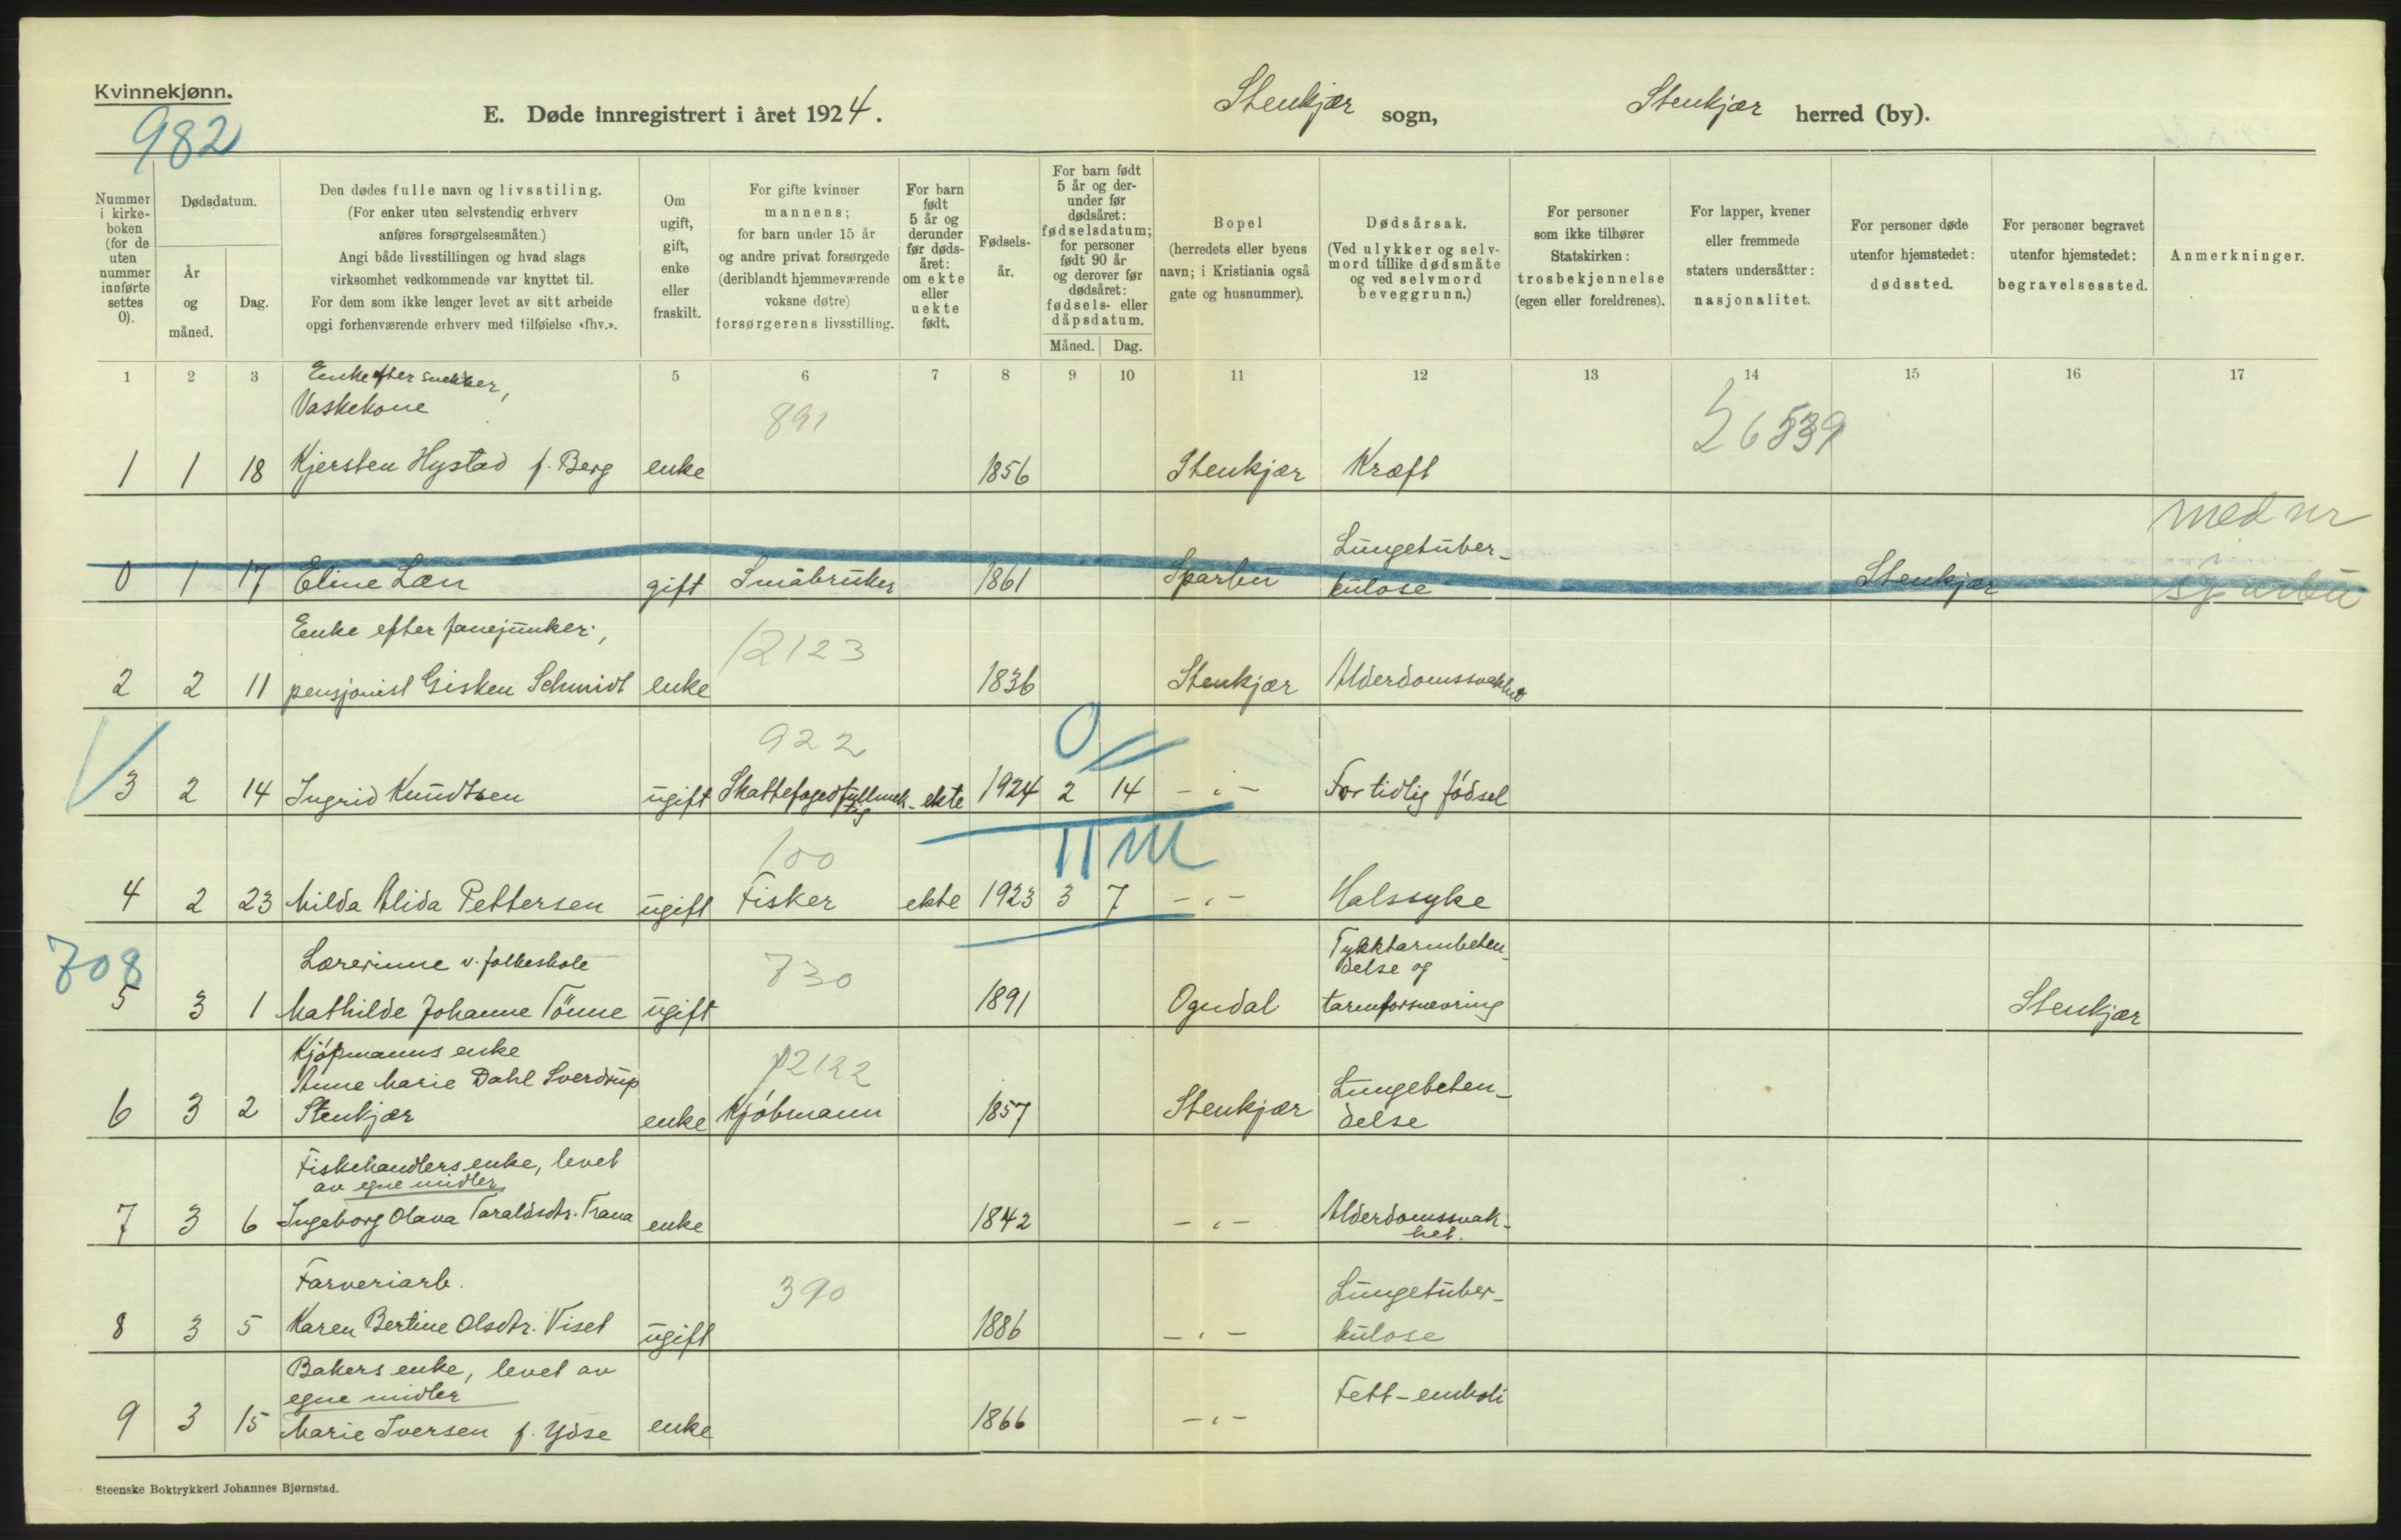 Kvinnekjønn.
982
E. Døde innregistrert i året 1924. Stenkjær sogn, Stenkjær herred (by).
Nummer i kirke- boken (for de uten nummer innførte settes 0).
Dødsdatum.
År og måned.
Dag.
Den dødes fulle navn og livsstiling.
(For enker uten selvstendig erhverv
anføres forsørgelsesmåten.)
Angi både livsstillingen og hvad slags
virksomhet vedkommende var knyttet til.
For dem som ikke lenger levet av sitt arbeide
opgi forhenværende erhverv med tilføielse «fhv.».
Om ugift, gift, enke eller fraskilt.
For gifte kvinner
mannens;
for barn under 15 år
og andre privat forsørgede
(deriblandt hjemmeværende
voksne døtre)
forsørgerens livsstilling.
For barn født 5 år og derunder før døds- året: om ekte eller uekte født.
Fødsels- år.
For barn født 5 år og der- under før dødsåret: fødselsdatum; for personer født 90 år og derover før dødsåret: fødsels- eller dåpsdatum.
Måned. Dag.
Bopel
(herredets eller byens
navn; i Kristiania også
gate og husnummer).
Dødsårsak.
(Ved ulykker og selv-
mord tillike dødsmåte
og ved selvmord
beveggrunn.)
For personer
som ikke tilhører
Statskirken:
trosbekjennelse
(egen eller foreldrenes).
For lapper, kvener
eller fremmede
staters undersåtter:
nasjonalitet.
For personer døde
utenfor hjemstedet:
dødssted.
For personer begravet
utenfor hjemstedet:
begravelsessted.
Anmerkninger.
1 2 3 5 6 7 8 9 10 11 12 13 14 15 16 17
Enke efter snekker,
Vaskekone
891
1 1 18 Kjersten Hystad f. Berg enke 1856 Stenkjær Kræft
med nr
Lungetuber-
0 1 17 Eline Læn gift Småbruker 1861 Sparbu kulose Stenkjær Sparbu
Enke efter fanejunker,
12123
2 2 11 pensjonist Gisken Schmidt enke 1836 Stenkjær Alderdomssvakhet
922
0
3 2 14 Ingrid Knudtsen ugift Skattefogedfullmek- tig ekte 1924 2 14 -"- For tidlig födsel
100
11 M
4 2 23 Milda Alida Pettersen ugift Fisker ekte 1923 3 7 -"- Halssyke
708
Lærerinne v. folkeskole
730
Tykktarmbeten-
delse og
5 3 1 Mathilde Johanne Tönne ugift 1891 Ogndal tarmforsnevring Stenkjær
Kjöpmanns enke
12122
Anne Marie Dahl Sverdrup
Lungebeten-
6 3 2 Stenkjær enke Kjöbmann 1857 Stenkjær delse
Fiskehandlers enke, levet
av egne midler
7 3 6 Ingeborg Olava Taraldsdtr. Trana enke 1842 -"- Alderdomssvak-
het.
Farveriarb.
390
Lungetuber-
8 3 5 Karen Bertine Olsdtr. Viset ugift 1886 -"- kulose
Bakers enke, levet av
egne midler
Fett-emboli
9 3 15 Marie Iversen f. Ydse enke 1866 -"-
Steenske Boktrykkeri Johannes Bjørnstad.